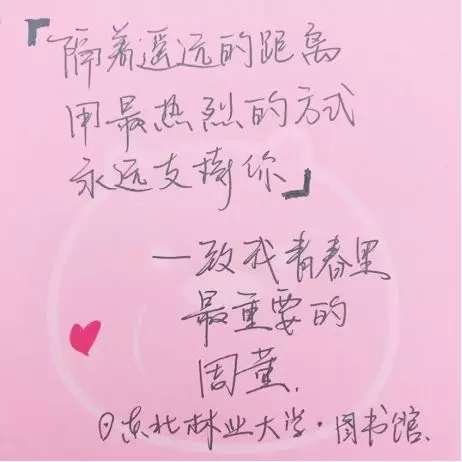 「隔着遥远的距离
用最热烈的方式
永远支撑你」
一致我青春里
最重要的
周董.
@东北林业大学·图书馆.